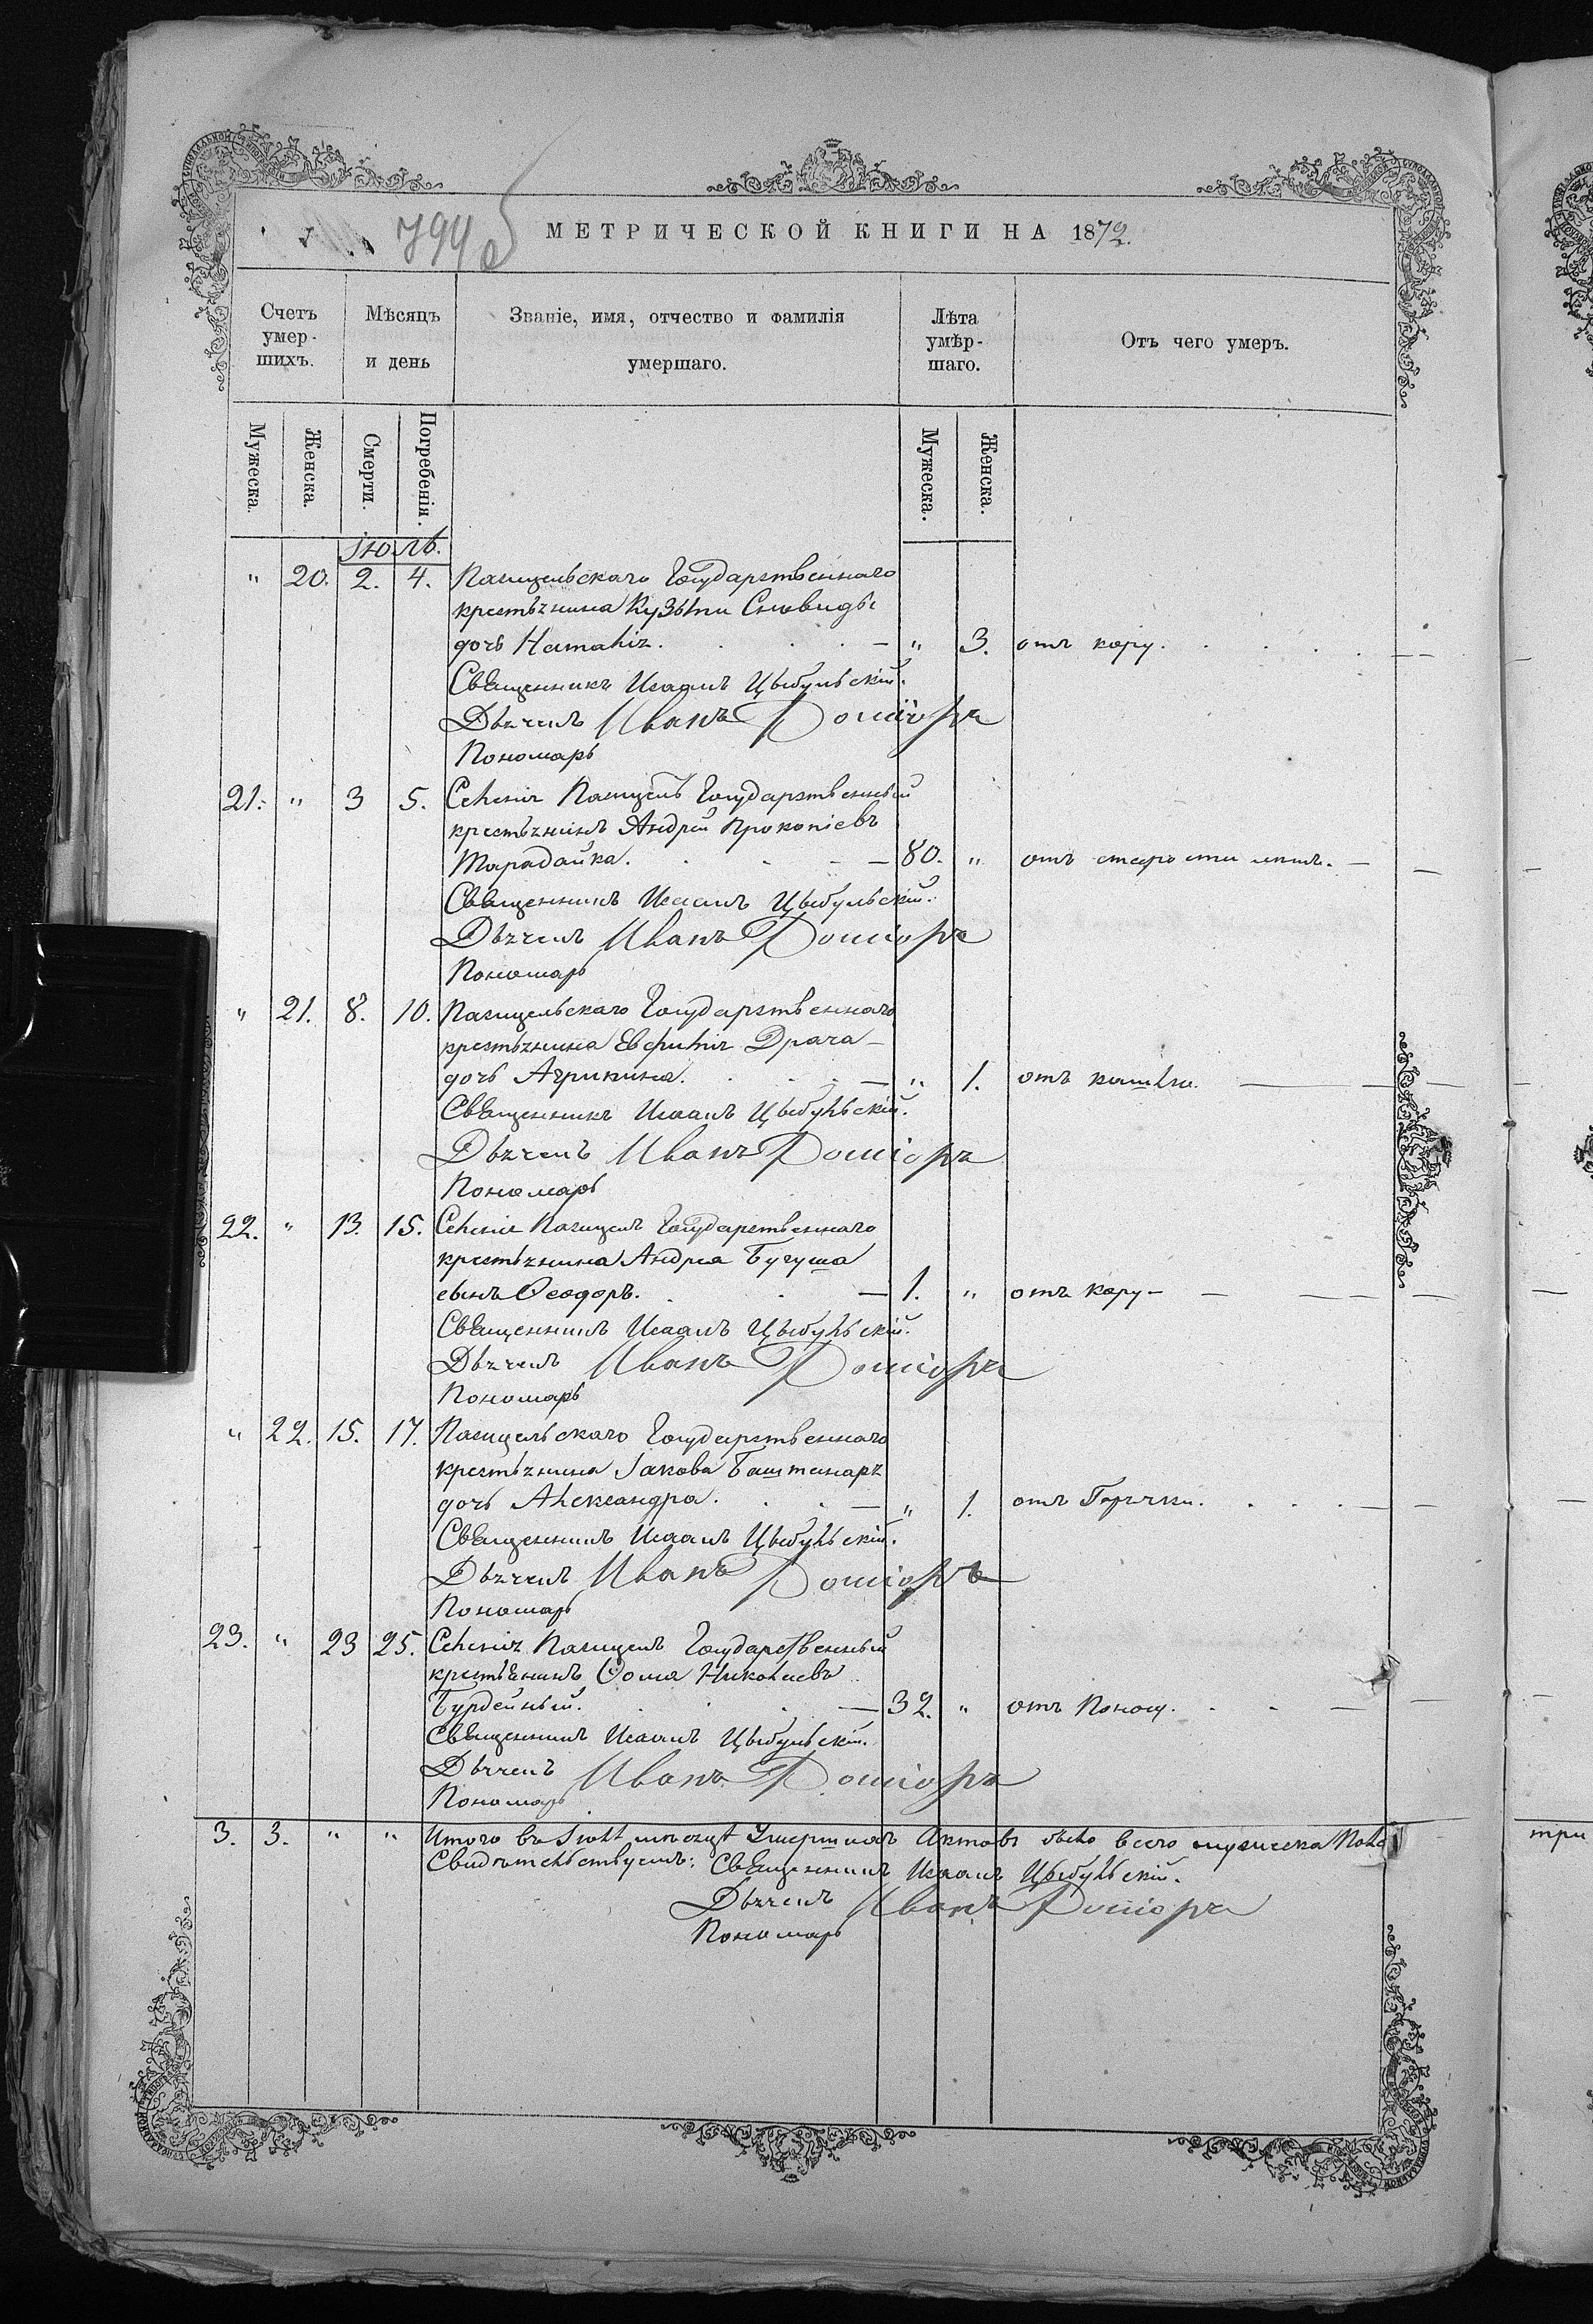 794 об
МЕТРИЧЕСКОЙ КНИГИ НА 1872.
Счетъ умер-шихъ.
Мѣсяцъ и день
Званіе, имя, отчество и фамилія умершаго.
Лѣта умѣр-шаго.
Отъ чего умеръ.
Мужеска.
Женска.
Смерти.
Погребенія.
Мужеска.
Женска.
Іюль.
" 20. 2. 4. Пагицельскаго Государственнаго
крестьянина Кузьми Сновиды
дочь Наталія. " 3. отъ кору.
Священникъ Исаакъ Цыбульскій.
Дьячекъ Иванъ
Пономарь
21. " 3 5. Селенія Пагицелъ Государственный
крестьянинъ Андрей Прокопіевъ
Тарадайка. 80. " отъ старости лѣтъ.
Священникъ Исаакъ Цыбульскій.
Дьячекъ Иванъ
Пономарь
" 21. 8. 10. Пагицельскаго Государственнаго
крестьянина Евфимія Драча
дочь Агрипина. " 1. отъ кашлю.
Священникъ Исаакъ Цыбульскій.
Дьячекъ Иванъ
Пономарь
22. " 13. 15. Селенія Пагицелъ Государственнаго
крестьянина Андрея Бугуша
сынъ Ѳеодоръ. 1. " отъ кору
Священникъ Исаакъ Цыбульскій.
Дьячекъ Иванъ
Пономарь
" 22. 15. 17. Пагицельскаго Государственнаго
крестьянина Іакова Баштанаря
дочь Александра. " 1. отъ Горячки.
Священникъ Исаакъ Цыбульскій.
Дьячекъ Иванъ
Пономарь
23. " 23 25. Селенія Пагицелъ Государственный
крестьянинъ Ѳома Николаевъ
Бурдейный. 32. " отъ Поносу.
Священникъ Исаакъ Цыбульскій.
Дьячекъ Иванъ
Пономарь
3. 3. " " Итого въ Іюлѣ мѣсяцѣ Умершихъ Актовъ было всего мужеска Пола
Свидѣтельствуемъ: Священникъ Исаакъ Цыбульскій.
Дьячекъ Иванъ
Пономарь
три